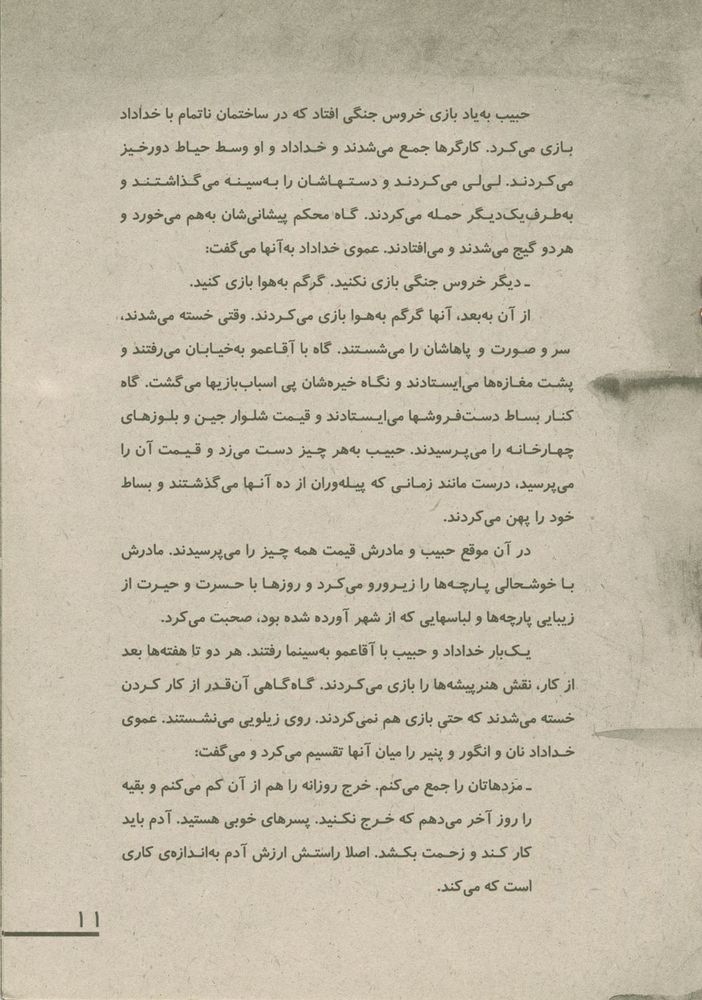 حبیب به‌یاد بازی خروس جنگی افتاد که در ساختمان ناتمام با خداداد
بازی می‌کرد. کارگرها جمع می‌شدند و خداداد و او وسط حیاط دورخیز
می‌کردند. لی‌لی می‌کردند و دستهاشان را به‌سینه می‌گذاشتند و
به‌طرف یک‌دیگر حمله می‌کردند. گاه محکم پیشانی‌شان به‌هم می‌خورد و
هردو گیج می‌شدند و می‌افتادند. عموی خداداد به‌آنها می‌گفت:
ـ دیگر خروس جنگی بازی نکنید. گرگم به‌هوا بازی کنید.
از آن به‌بعد، آنها گرگم به‌هوا بازی می‌کردند. وقتی خسته می‌شدند،
سر و صورت و پاهاشان را می‌شستند. گاه با آقاعمو به‌خیابان می‌رفتند و
پشت مغازه‌ها می‌ایستادند و نگاه خیره‌شان پی اسباب‌بازیها می‌گشت. گاه
کنار بساط دست‌فروشها می‌ایستادند و قیمت شلوار جین و بلوزهای
چهارخانه را می‌پرسیدند. حبیب به‌هر چیز دست می‌زد و قیمت آن را
می‌پرسید، درست مانند زمانی که پیله‌وران از ده آنها می‌گذشتند و بساط
خود را پهن می‌کردند.
در آن موقع حبیب و مادرش قیمت همه چیز را می‌پرسیدند. مادرش
با خوشحالی پارچه‌ها را زیرورو می‌کرد و روزها با حسرت و حیرت از
زیبایی پارچه‌ها و لباسهایی که از شهر آورده شده بود، صحبت می‌کرد.
یک‌بار خداداد و حبیب با آقاعمو به‌سینما رفتند. هر دو تا هفته‌ها بعد
از کار، نقش هنرپیشه‌ها را بازی می‌کردند. گاه‌گاهی آن‌قدر از کار کردن
خسته می‌شدند که حتی بازی هم نمی‌کردند. روی زیلویی می‌نشستند. عموی
خداداد نان و انگور و پنیر را میان آنها تقسیم می‌کرد و می‌گفت:
ـ مزدهاتان را جمع می‌کنم. خرج روزانه را هم از آن کم می‌کنم و بقیه
را روز آخر می‌دهم که خرج نکنید. پسرهای خوبی هستید. آدم باید
کار کند و زحمت بکشد. اصلا راستش ارزش آدم به‌اندازه‌ی کاری
است که می‌کند.
۱۱